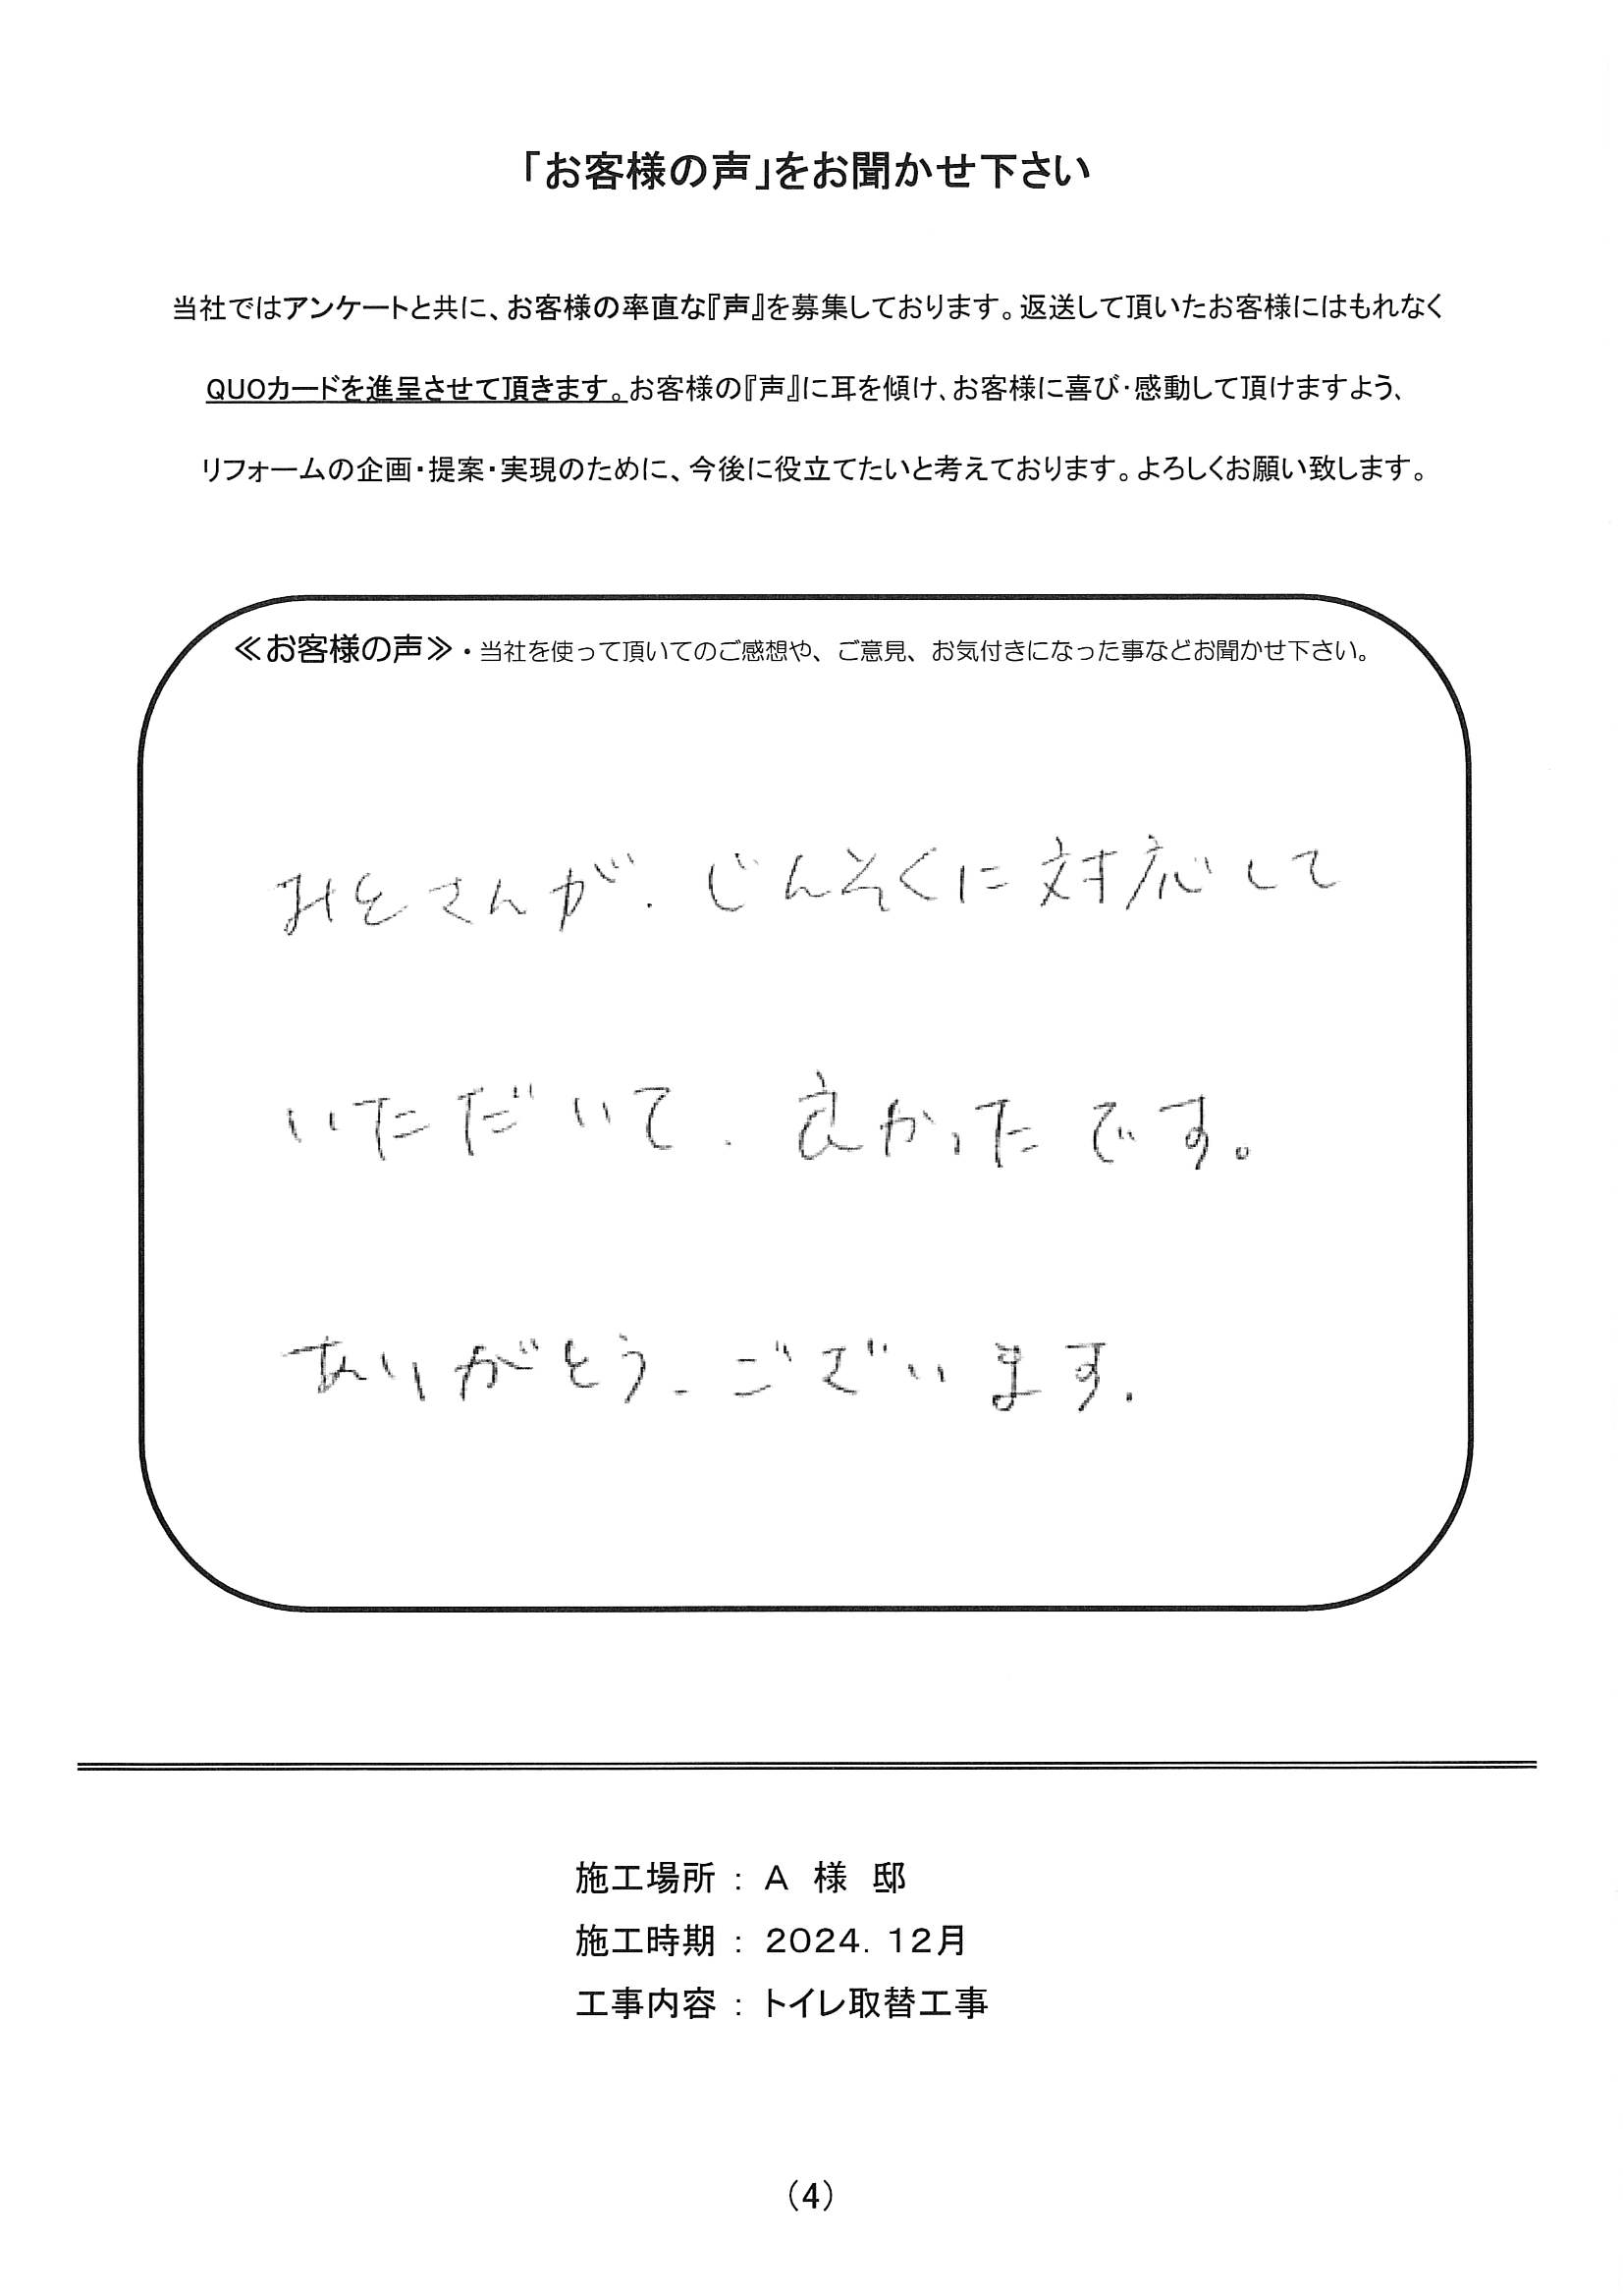 「お客様の声」をお聞かせ下さい
当社ではアンケートと共に、お客様の率直な『声』を募集しております。返送して頂いたお客様にはもれなく
QUOカードを進呈させて頂きます。お客様の『声』に耳を傾け、お客様に喜び・感動して頂けますよう、
リフォームの企画・提案・実現のために、今後に役立てたいと考えております。よろしくお願い致します。
≪お客様の声≫・当社を使って頂いてのご感想や、ご意見、お気付きになった事などお聞かせ下さい。
さんが、じんそくに対応して
いただいて、良かったです。
ありがとう、ございます.
施工場所 : A 様 邸
施工時期 : 2024. 12月
工事内容 : トイレ取替工事
(4)